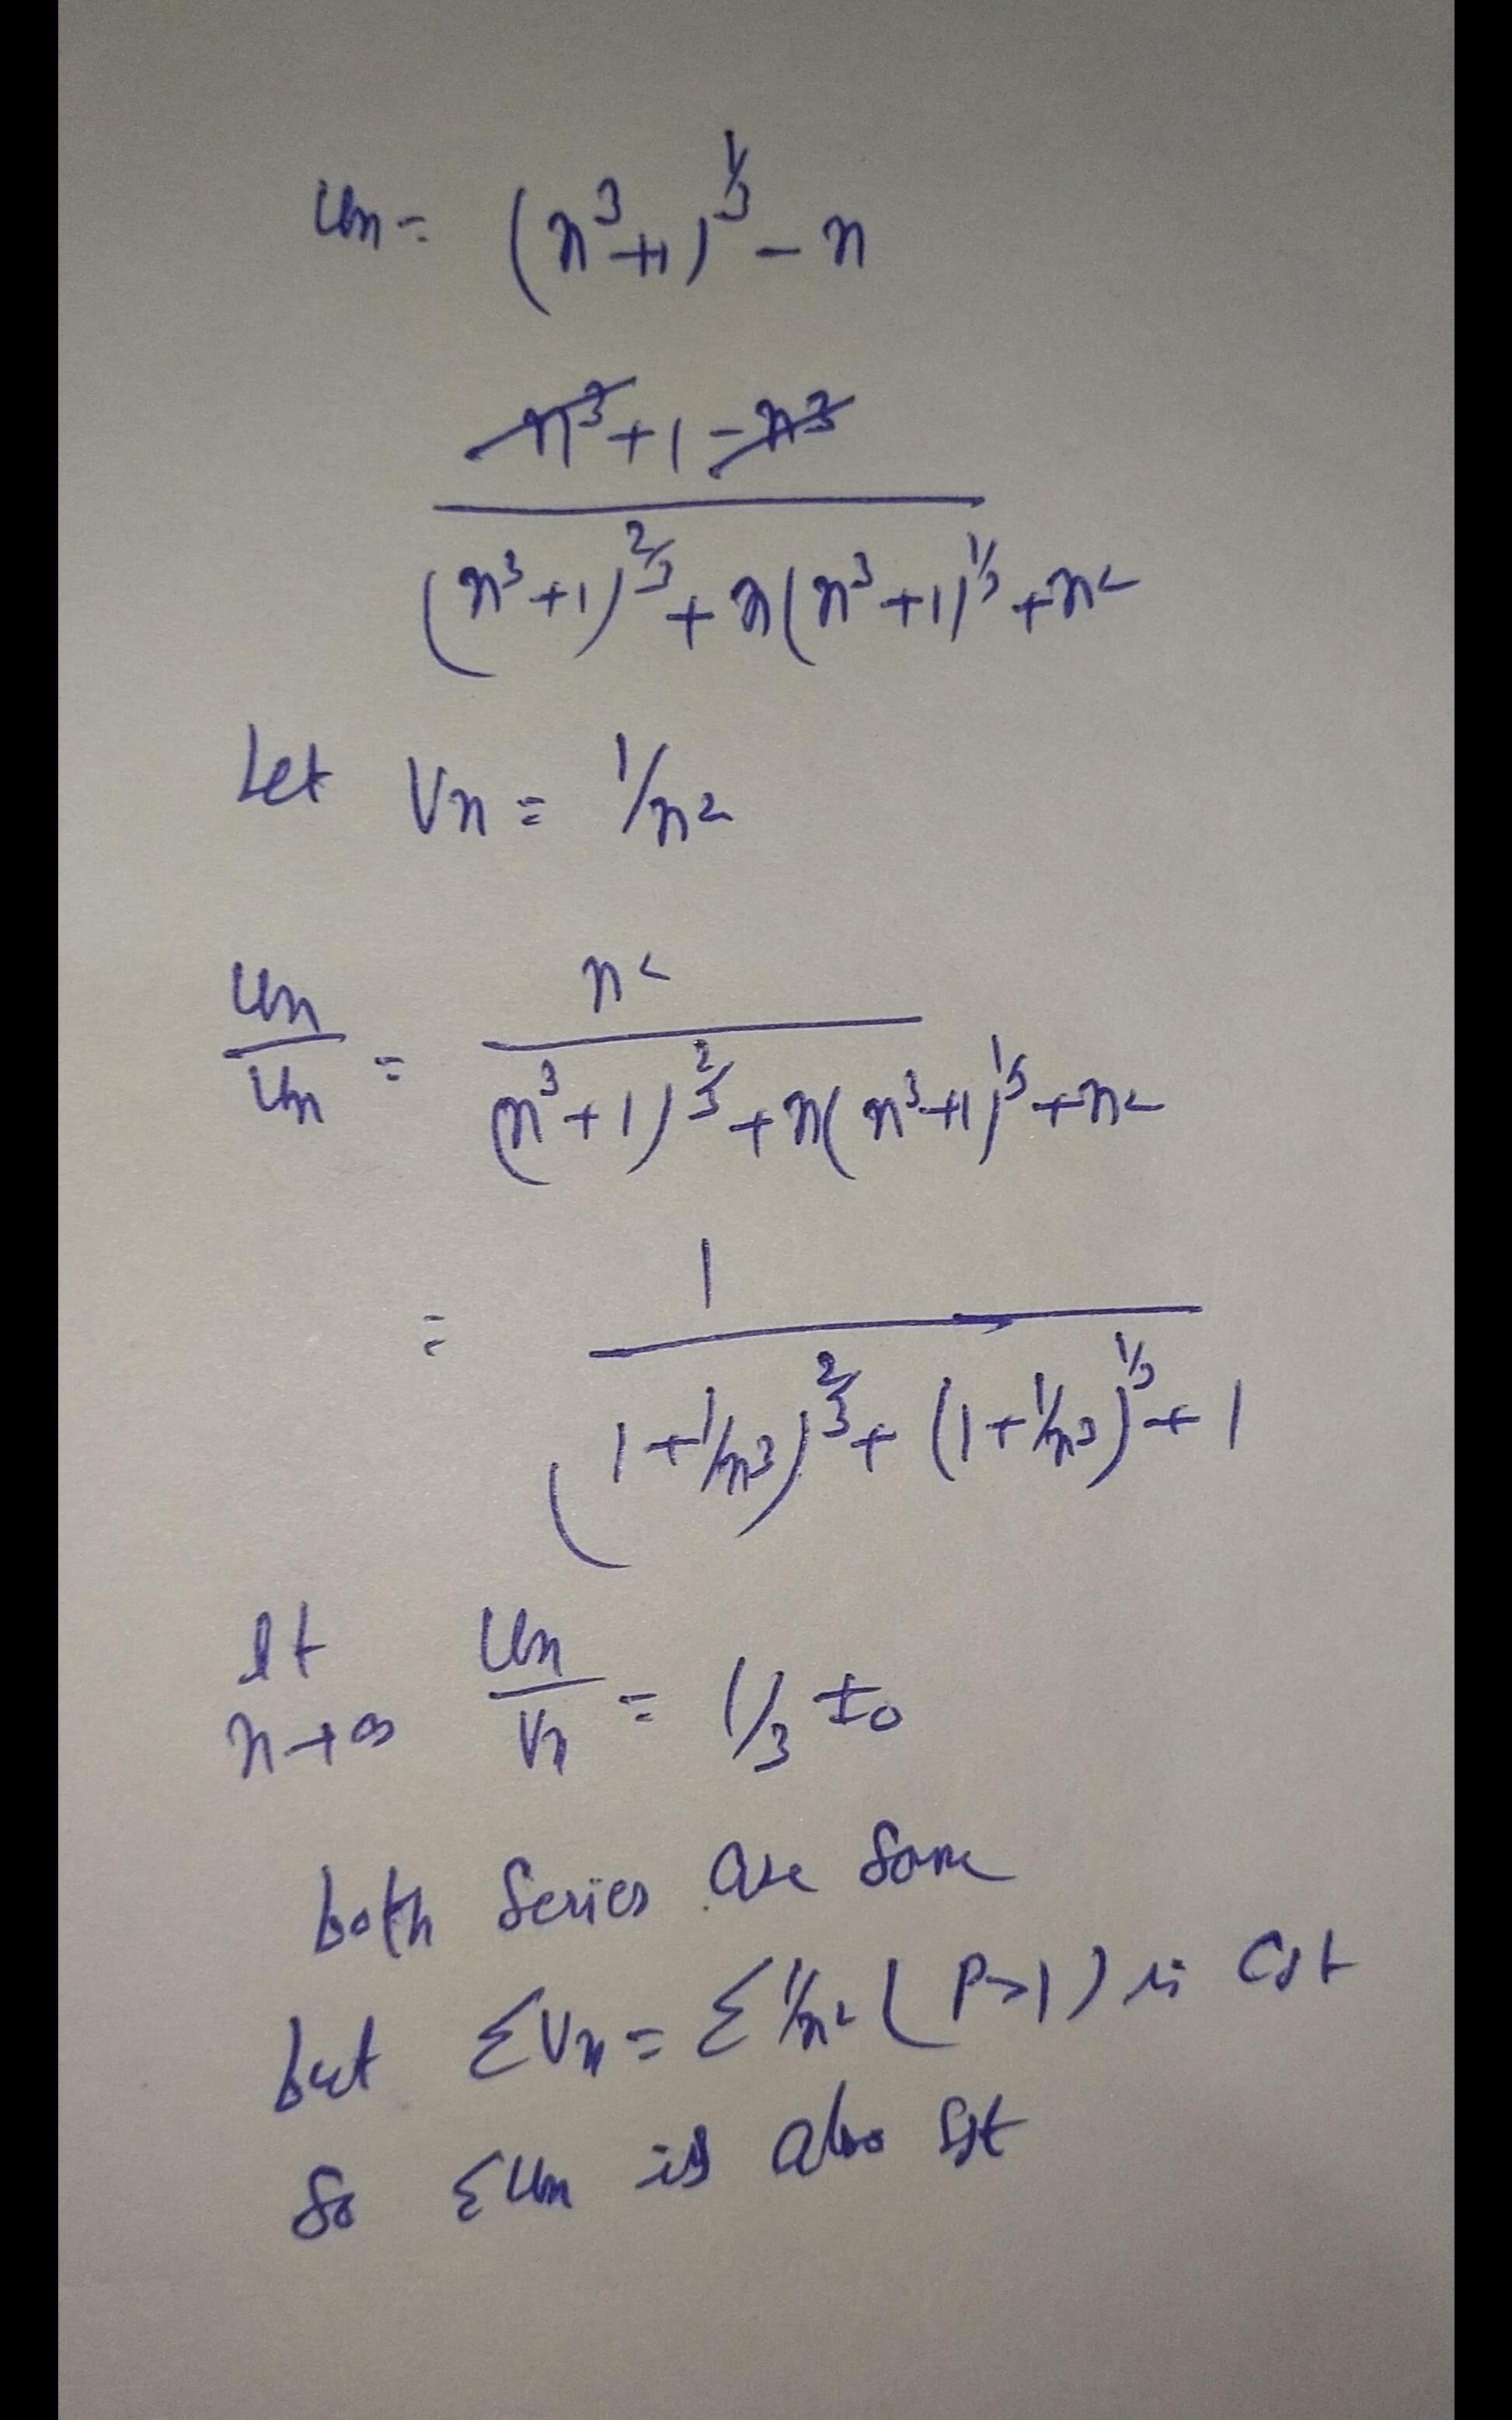 Un = (n³+1)^1/3 - n
n³+1-n³
(n³+1)^2/3 + n(n³+1)^1/3 + n²
Let Vn = 1/n²
Un/Vn = n² / (n³+1)^2/3 + n(n³+1)^1/3 + n²
= 1 / (1+1/n³)^2/3 + (1+1/n³)^1/3 + 1
lt n→∞ Un/Vn = 1/3 ≠ 0
both Series are Same
but ΣVn = Σ1/n² (P>1) is Cgt
So ΣUn is also Cgt